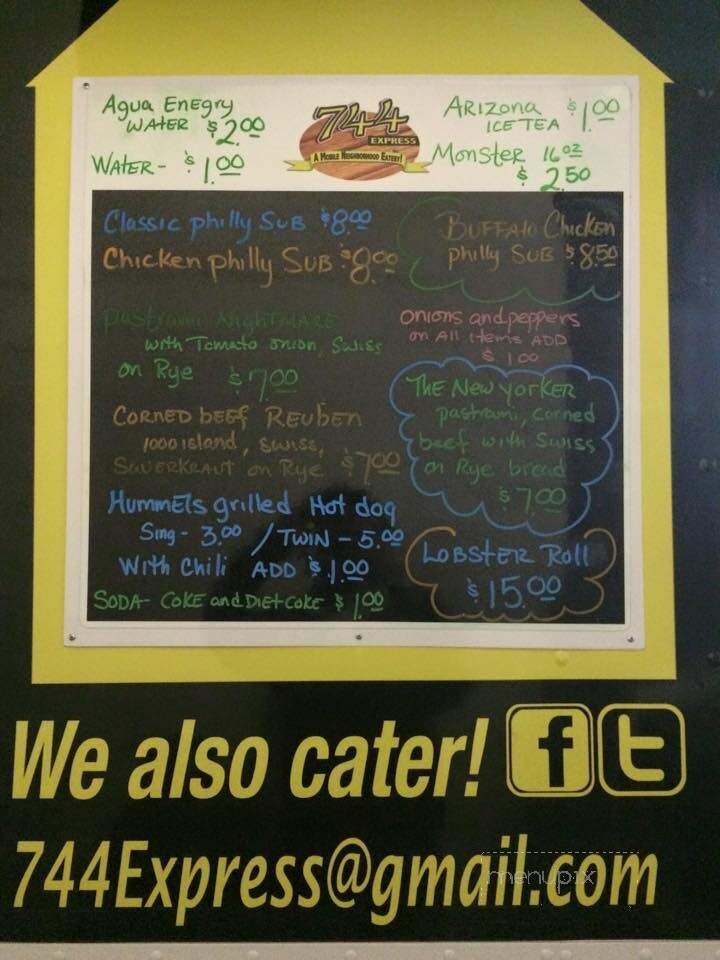 Agua Enegry
WATER $2.00
WATER- $1.00
744
EXPRESS
A MOBILE NEIGHBORHOOD EATERY!
ARIZONA $1.00
ICE TEA
Monster 16oz
$2.50
Classic philly SUB $8.00
Chicken philly SUB $8.00
BUFFAlo Chicken
philly SUB $8.50
pastrami NightmARE
with Tomato onion, Swiss
on Rye $7.00
onions and peppers
on All items ADD
$1.00
CORNED bEEf REUbEN
1000 island, swiss,
SAUERKRAUT on Rye $7.00
THE NEW YORKER
pastrami, corned
beef with Swiss
on Rye bread
$7.00
HummEls grilled Hot dog
Sing- 3.00 / TWIN - 5.00
With Chili ADD $1.00
LOBSTER Roll
$15.00
SODA- COKE and DIET COKE $1.00
We also cater! f t
744Express@gmail.com
menupix